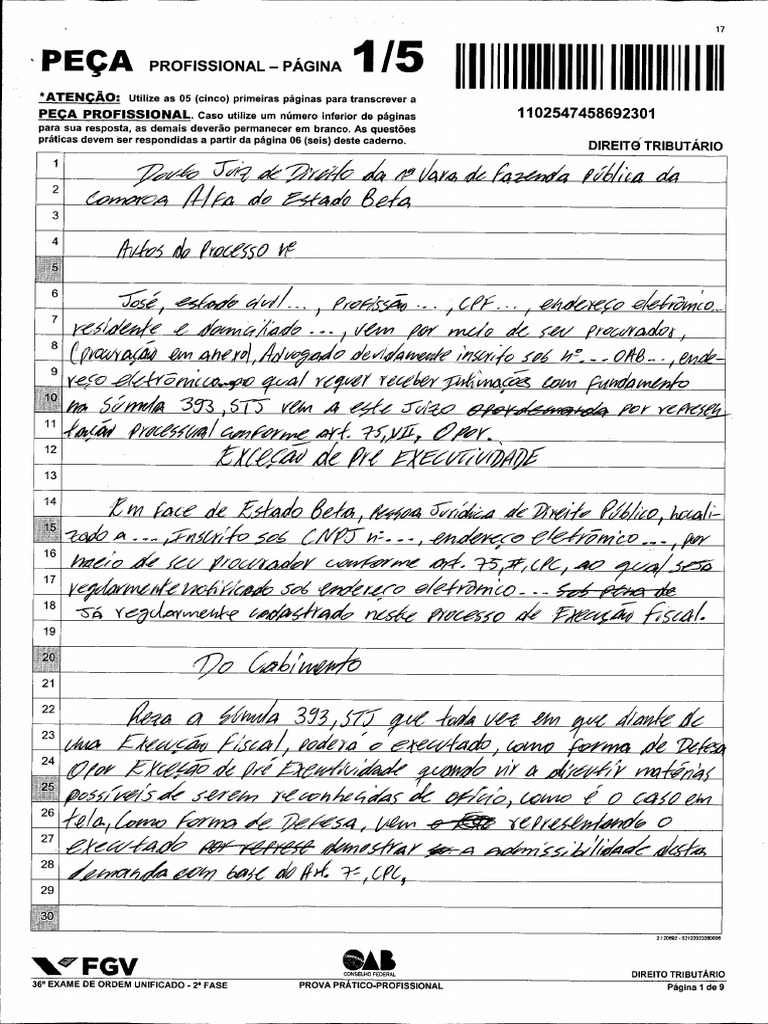 17
PEÇA PROFISSIONAL – PÁGINA 1/5
*ATENÇÃO: Utilize as 05 (cinco) primeiras páginas para transcrever a
PEÇA PROFISSIONAL. Caso utilize um número inferior de páginas
para sua resposta, as demais deverão permanecer em branco. As questões
práticas devem ser respondidas a partir da página 06 (seis) deste caderno.
1102547458692301
DIREITO TRIBUTÁRIO
1 Douto Juiz de Direito da nª Vara de Fazenda Pública da
2 Comarca Alfa do Estado Beta
3
4 Autos do Processo nº
5
6 José, estado civil..., profissão..., CPF..., endereço eletrônico...
7 residente e domiciliado..., vem por meio de seu procurador,
8 (procuração em anexo), Advogado devidamente inscrito sob nº...OAB..., ende-
9 reço eletrônico...no qual requer receber Intimações com fundamento
10 na Súmula 393, STJ vem a este Juízo opor demanda por represen
11 tação processual conforme art. 75, VII, Opor.
12 EXCEÇÃO de Pré EXECUTIVIDADE
13
14 Em face de Estado Beta, pessoa Jurídica de Direito Público, localí-
15 zado a..., Inscrito sob CNPJ nº..., endereço eletrônico..., por
16 meio de seu procurador conforme art. 75, II, CPC, ao qual seja
17 regularmente notificado sob endereço eletrônico... sob pena de
18 Já regularmente cadastrado neste processo de Execução Fiscal.
19
20 Do Cabimento
21
22 Reza a Súmula 393, STJ que toda vez em que diante de
23 uma Execução Fiscal, poderá o executado, como forma de Defesa
24 Opor Exceção de pré Exectividade quando vir a discutir matérias
25 possíveis de serem reconhecidas de ofício, como é o caso em
26 tela, Como forma de Defesa, vem representando o
27 executado por represt demostrar a admissibilidade desta
28 demanda com base do Art. 7º, CPC,
29
30
2 / 20692 - 02123922080006
FGV
OAB
CONSELHO FEDERAL
36º EXAME DE ORDEM UNIFICADO - 2ª FASE
PROVA PRÁTICO-PROFISSIONAL
DIREITO TRIBUTÁRIO
Página 1 de 9